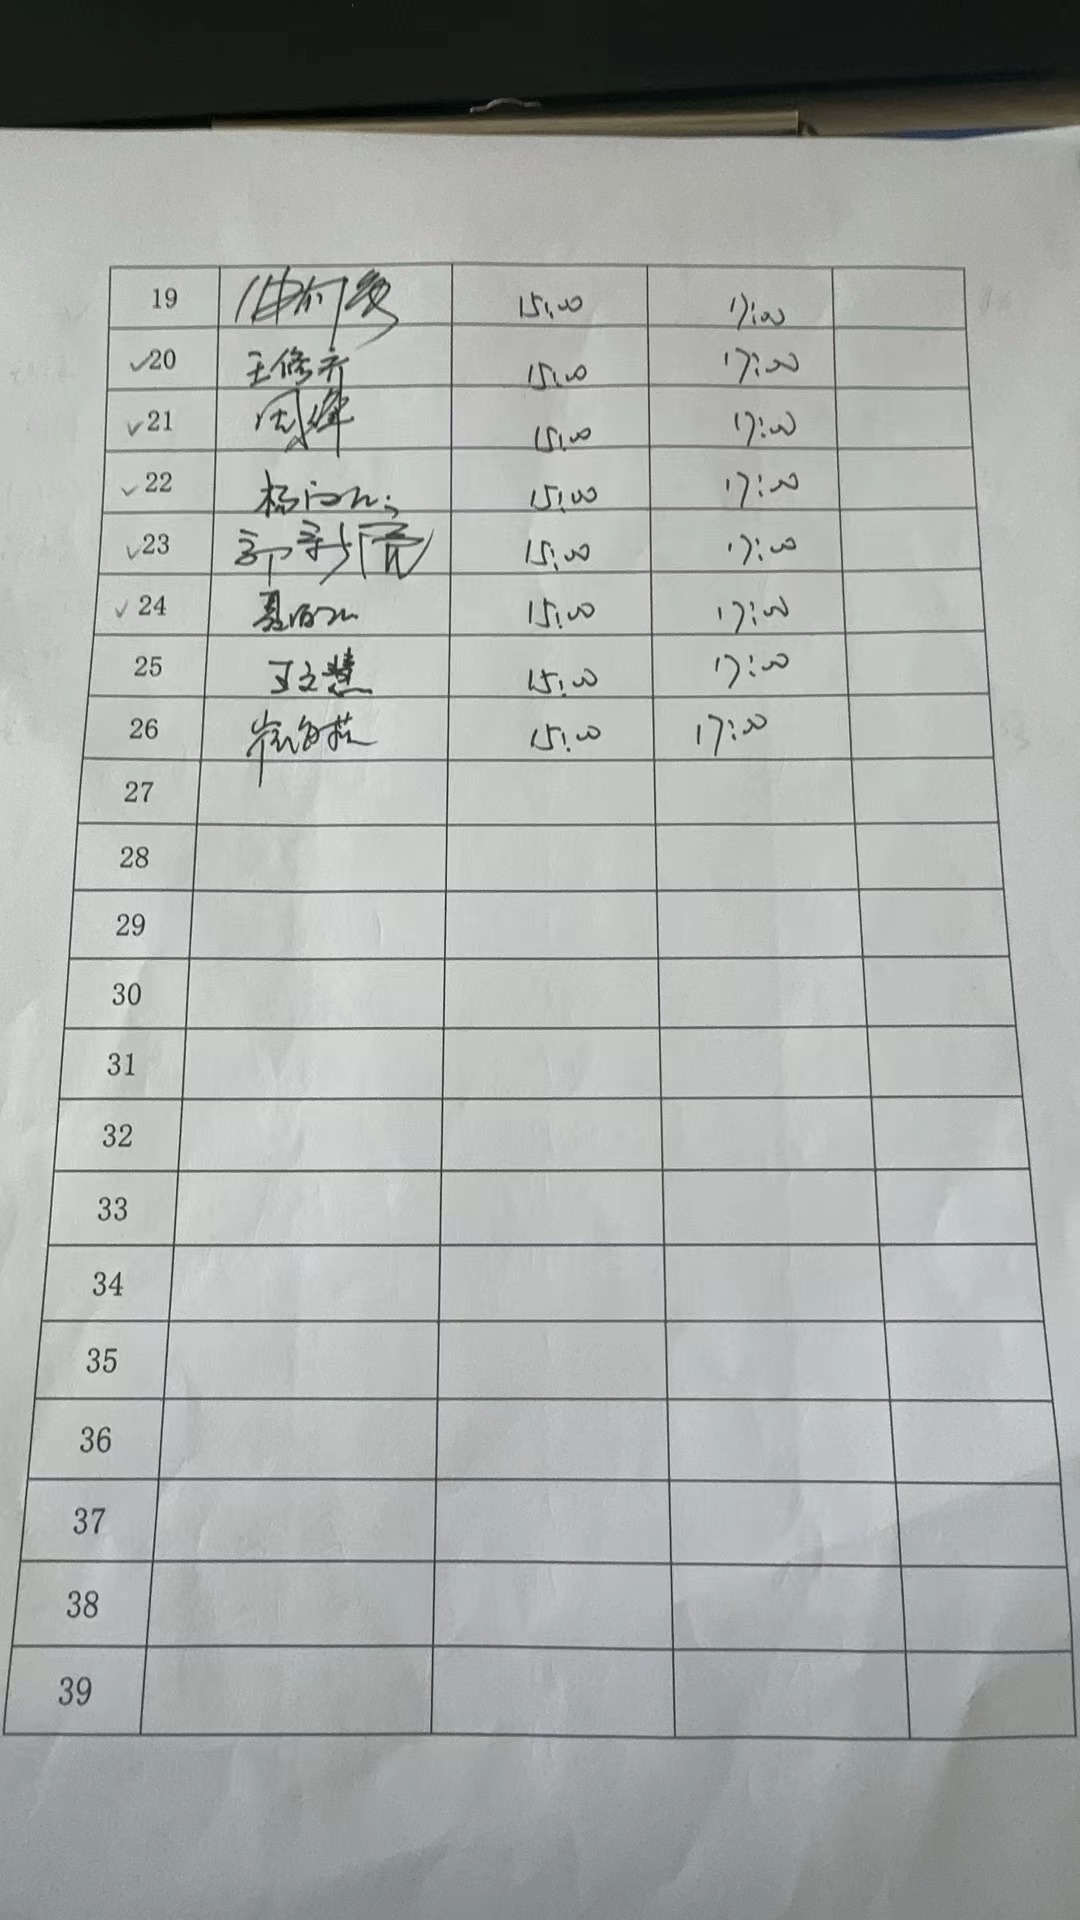 19 15:00 17:00
✓20 王修齐 15:00 17:00
✓21 周峰 15:00 17:00
✓22 杨 15:00 17:00
✓23 郭 15:00 17:00
✓24 15:00 17:00
25 王文慧 15:00 17:00
26 崔 15:00 17:00
27
28
29
30
31
32
33
34
35
36
37
38
39